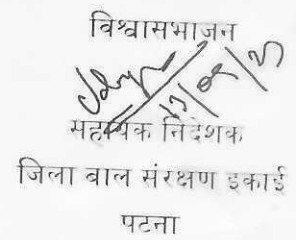 विश्वासभाजन
सहायक निदेशक
जिला बाल संरक्षण इकाई
पटना